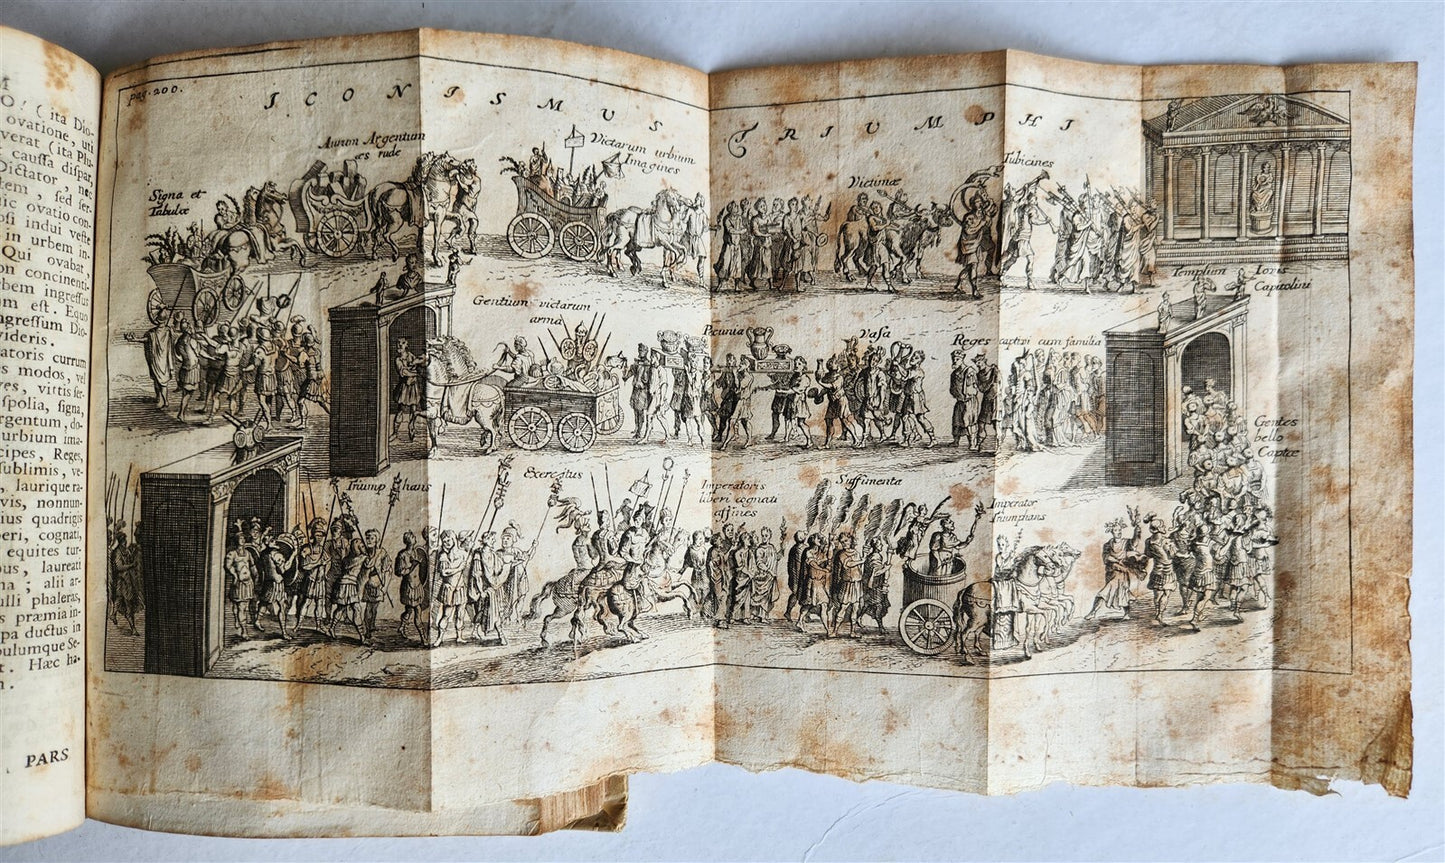 M
O! (ita Dio-
ovatione, uti
verat (ita Plu-
caussa dispar,
Dictator, nec
tem, sed ser-
ic ovatio con-
osi indui veste
in urbem in-
Qui ovabat,
on concinenti-
bem ingressus
um est. Equo
ngressum Dio-
videris.
atoris currum
s modos, vel
res, vittis ser-
spolia, signa,
rgentum, do-
urbium ima-
cipes, Reges,
sublimis, ve-
, laurique ra-
vis, nonnun-
ius quadrigis
beri, cognati,
equites tur-
ous, laureati
na; alii ar-
ulli phaleras,
s præmia in-
pa ductus in
ulumque Se-
t. Hæc ha-
PARS
pag. 200.
ICONISMUS TRIUMPHI
Signa et
Tabulæ
Aurum Argentum
æs rude
Victarum urbium
Imagines
Victimæ
Tubicines
Templum Iovis
Capitolini
Gentium victarum
arma
Pecunia
Vasa
Reges captivi cum familia
Gentes
bello
Captæ
Triumphans
Exercitus
Imperatoris
liberi cognati
affines
Suffimenta
Imperator
Triumphans